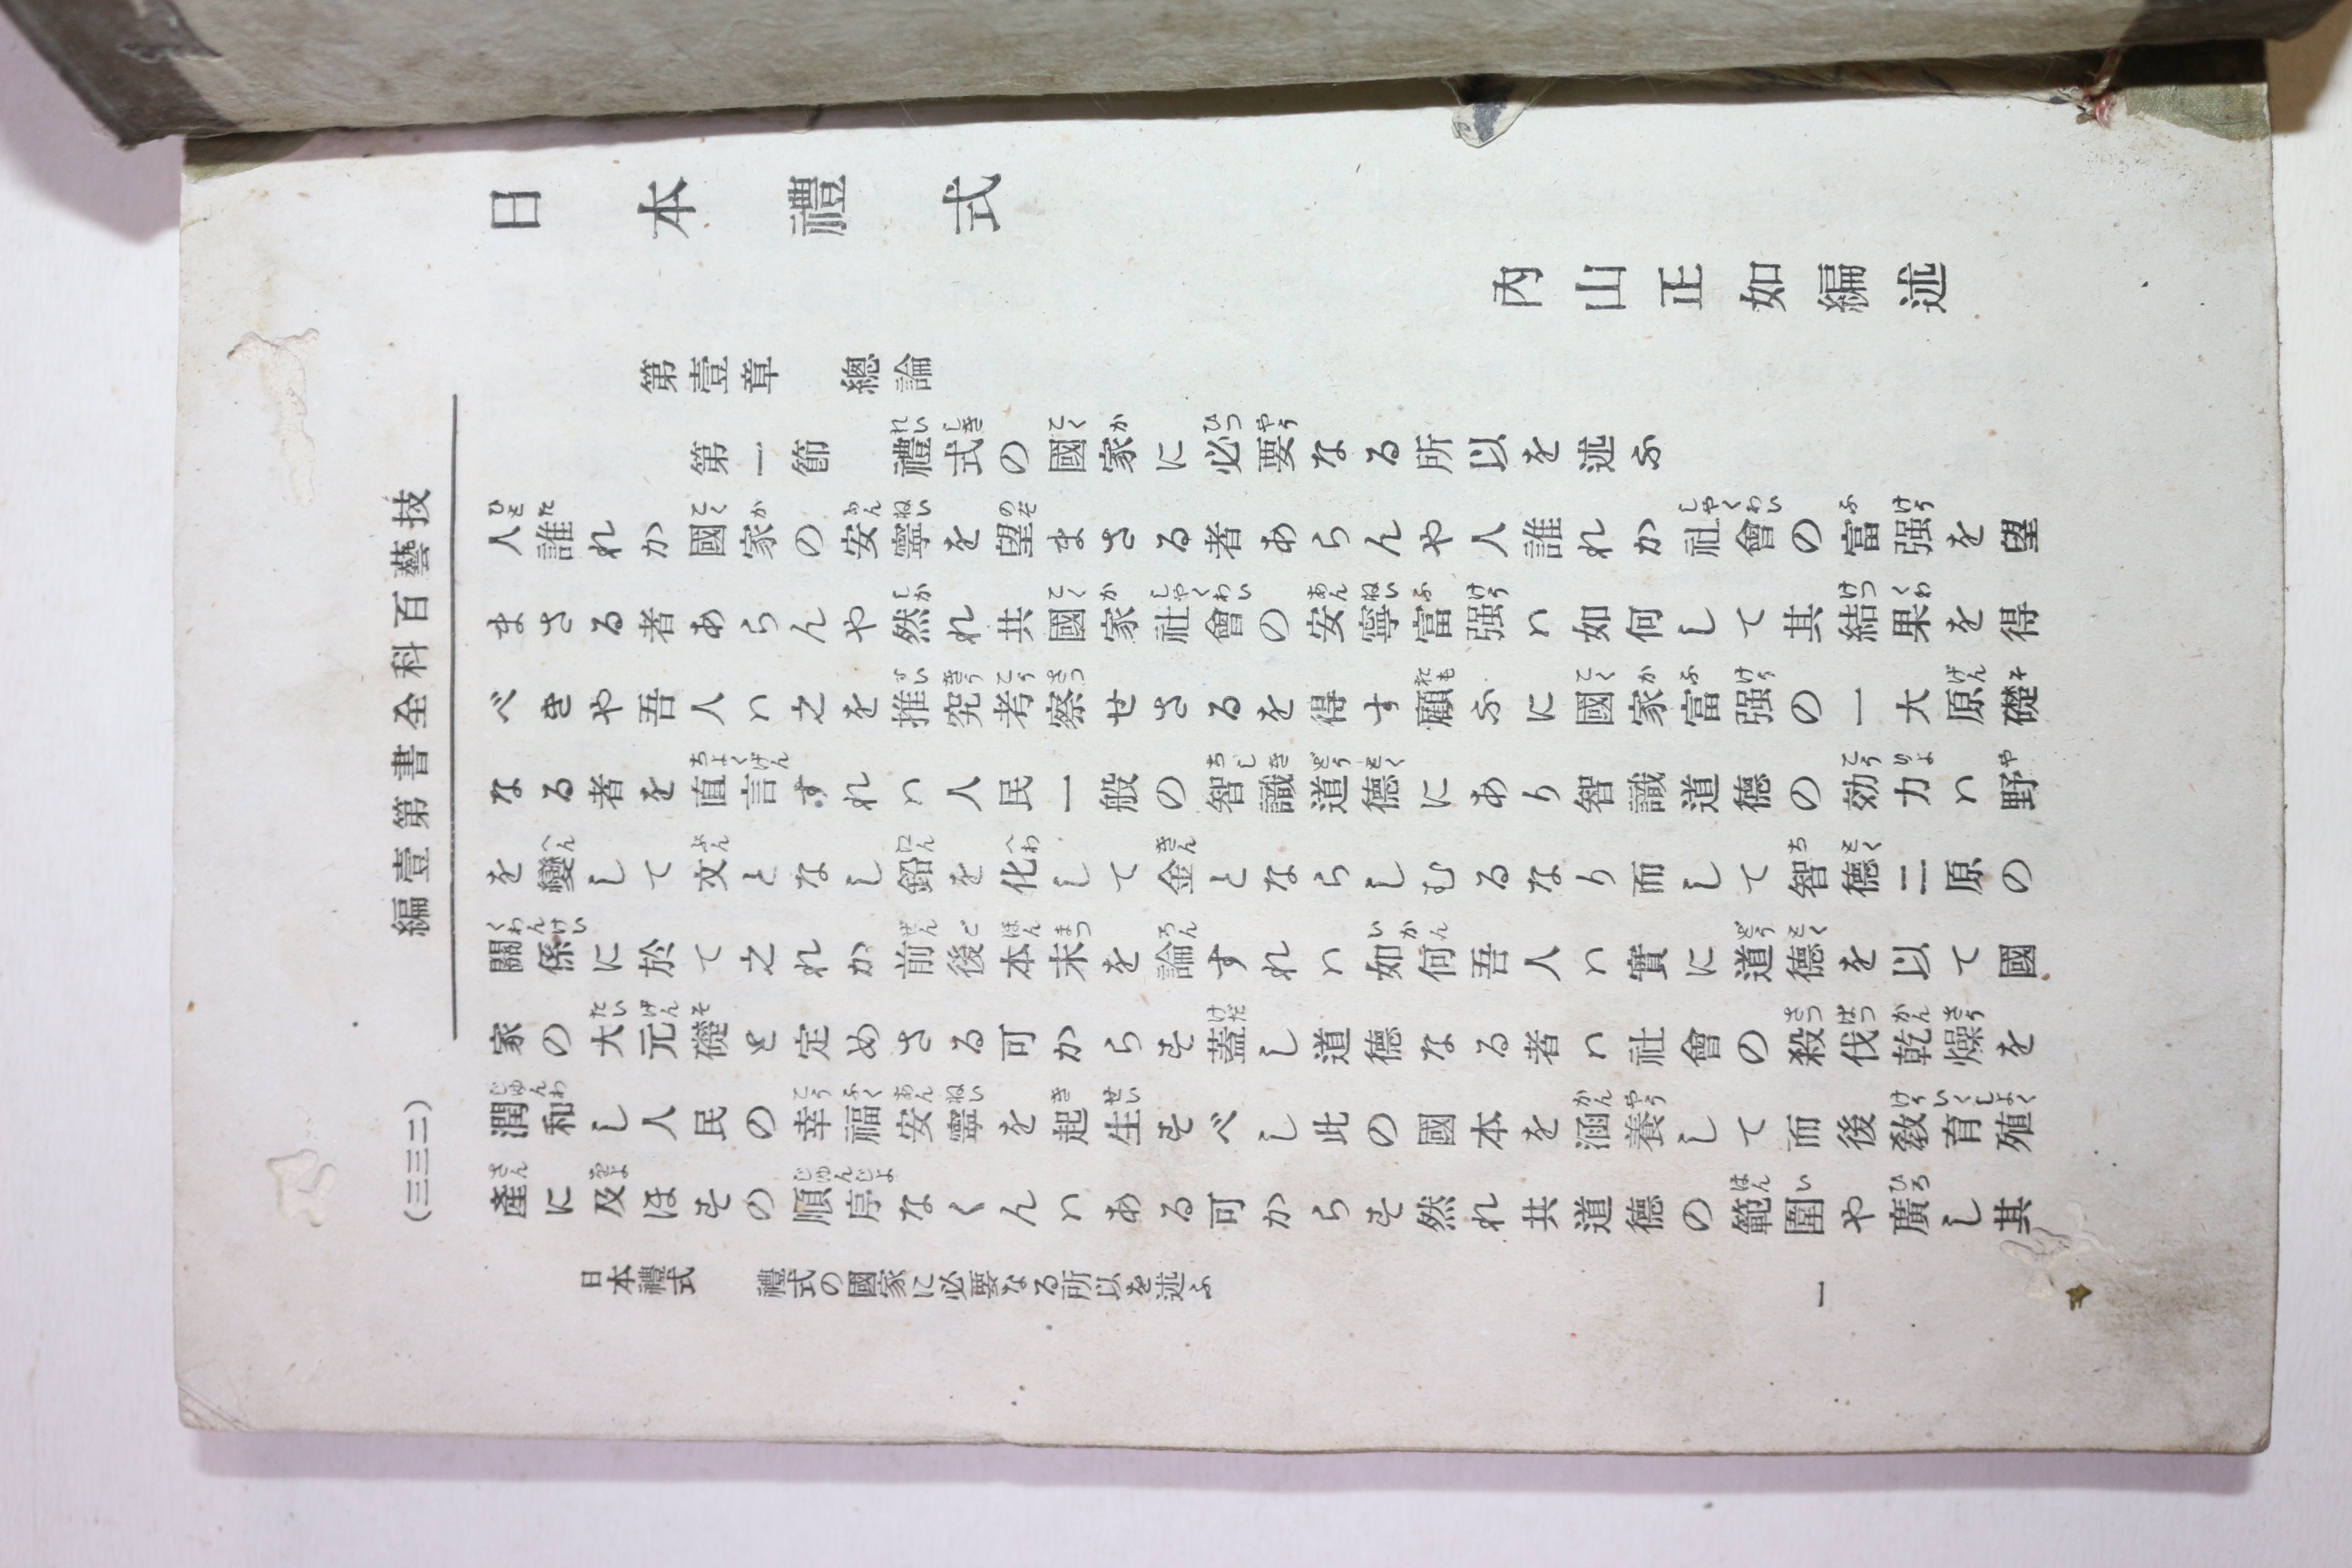 日本禮式
內山正如編述
第壹章　總論
第一節　禮式の國家に必要なる所以を述ふ
人誰れか國家の安寧を望まさる者あらんや人誰れか社會の富强を望
まさる者あらんや然れ共國家社會の安寧富强ハ如何して其結果を得
べきや吾人ハ之を推究考察せさるを得す顧ふに國家富强の一大原礎
なる者を直言すれハ人民一般の智識道德にあり智識道德の効力ハ野
を變して文となし鉛を化して金とならしむるなり而して智德二原の
關係に於て之れか前後本末を論すれハ如何吾人ハ實に道德を以て國
家の大元礎と定めさる可からす蓋し道德なる者ハ社會の殺伐乾燥を
潤和し人民の幸福安寧を起生すべし此の國本を涵養して而後敎育殖
產に及ほすの順序なくんハある可からす然れ共道德の範圍や廣し其
技藝百科全書第壹編
（三三三）
日本禮式　禮式の國家に必要なる所以を述ふ
一